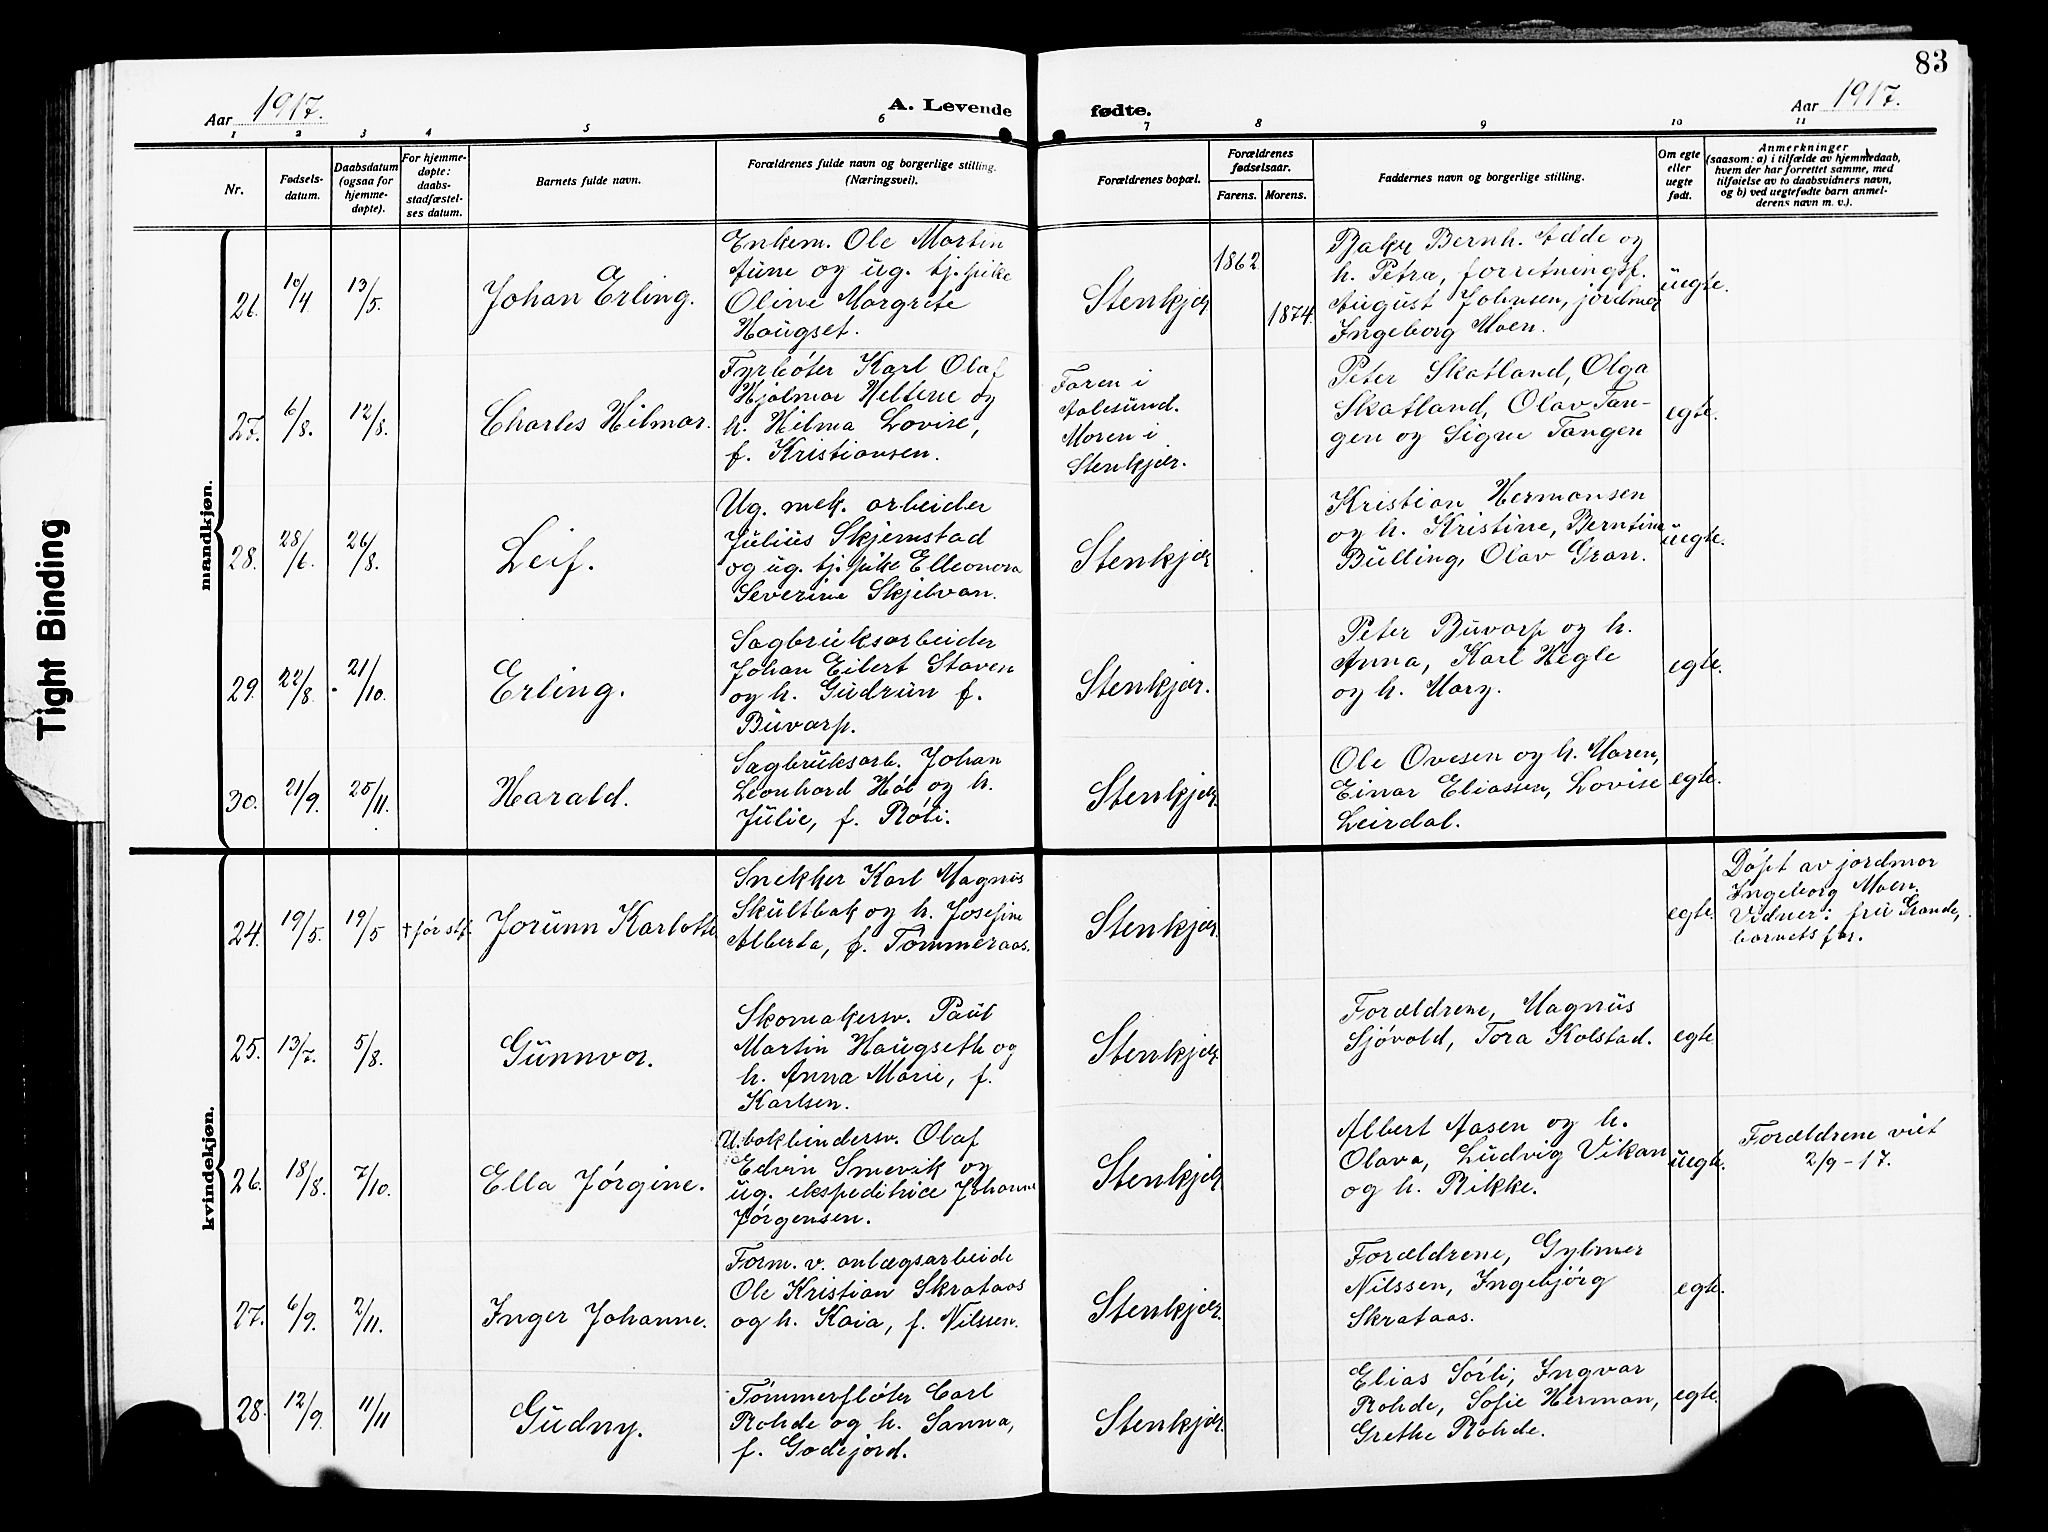 83
Aar 1917.
A. Levende
fødte.
Aar 1917.
1 2 3 4 5 6 7 8 9 10 11
Nr.
Fødsels-
datum.
Daabsdatum
(ogsaa for
hjemme-
døpte).
For hjemme-
døpte:
daabs-
stadfæstel-
ses datum.
Barnets fulde navn.
Forældrenes fulde navn og borgerlige stilling.
(Næringsvei).
Forældrenes bopæl.
Forældrenes
fødselsaar.
Farens. Morens.
Faddernes navn og borgerlige stilling.
Om egte
eller
uegte
født.
Anmerkninger
(saasom: a) i tilfælde av hjemmedaab,
hvem der har forrettet samme, med
tilføielse av to daabsvidners navn,
og b) ved uegtefødte barn anmel-
derens navn m. v.).
mandkjøn.
26.
10/4
13/5.
Johan Erling.
Enkem. Ole Martin
Aune og ug. tj.pike
Oline Margrete
Haugset.
Stenkjær
1862.
1874.
Baker Bernh. Adde og
h. Petra, forretningsf.
August Johnsen, jordmor
Ingeborg Moen.
uegte.
27.
6/8.
12/8.
Charles Hilmar.
Fyrbøter Karl Olaf
Hjalmar Heltene og
h. Hilma Lovise,
f. Kristiansen.
Faren i
Aalesund.
Moren i
Stenkjær.
Peter Skatland, Olga
Skatland, Olav Tan-
gen og Signe Tangen
egte.
28.
28/6.
26/8.
Leif.
Ug. mek. arbeider
Julius Skjemstad
og ug. tj. pike Elleonora
Severine Skjelvan.
Stenkjær
Kristian Hermansen
og h. Kristine, Berntine
Bulling, Olav Gran.
uegte.
29.
22/8.
21/10.
Erling.
Sagbruksarbeider
Johan Eilert Staven
og h. Gudrun f.
Buvarp.
Stenkjær.
Peter Buvarp og h.
Anna, Karl Hegle
og h. Mary.
egte.
30.
21/9.
25/11.
Harald.
Sagbruksarb. Johan
Leonhard Høl og h.
Julie, f. Røli.
Stenkjær
Ole Ovesen og h. Maren,
Einar Eliassen, Lovise
Leirdal.
egte.
kvindekjøn.
24.
19/5.
19/5
† før stf.
Jorunn Karlotte
Snekker Karl Magnus
Skultbak og h. Josefine
Alberta, f. Tømmeraas.
Stenkjær.
egte.
Døpt av jordmor
Ingeborg Moen.
Vidner: fru Grande,
barnets far.
25.
13/7.
5/8.
Gunnvor.
Skomakersv. Paul
Martin Haugseth og
h. Anna Marie, f.
Karlsen.
Stenkjær
Forældrene, Magnus
Sjøvold, Tora Kolstad.
egte.
26.
18/8.
7/10.
Ella Jørgine.
U. bokbindersv. Olaf
Edvin Smevik og
ug. ekspeditrice Johanne
Jørgensen.
Stenkjær
Albert Aasen og h.
Olava, Ludvig Vikan
og h. Rikke.
uegte.
Forældrene viet
2/9-17.
27.
6/9.
2/11.
Inger Johanne.
Form. v. anlægsarbeide
Ole Kristian Skrataas
og h. Kaia, f. Nilssen.
Stenkjær.
Forældrene, Gylmer
Nilssen, Ingebjørg
Skrataas.
egte.
28.
12/9.
11/11
Gudny.
Tømmerfløter Carl
Rohde og h. Sanna,
f. Godejord.
Stenkjær.
Elias Sørli, Ingvar
Rohde, Sofie Herman,
Grethe Rohde.
egte.
Tight Binding